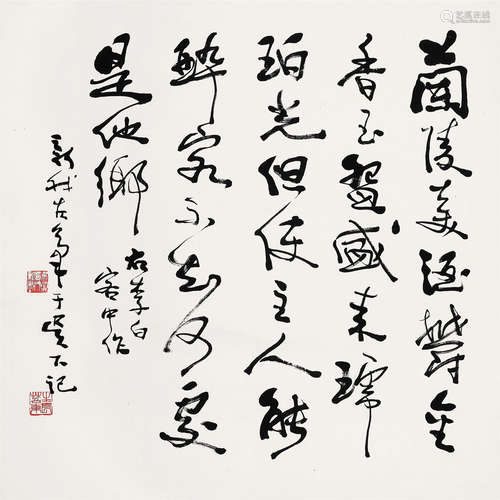 蘭陵美酒鬱金
香玉盌盛来琥
珀光但使主人能
醉客不知何處
是他鄉
右李白
客中作
新秋